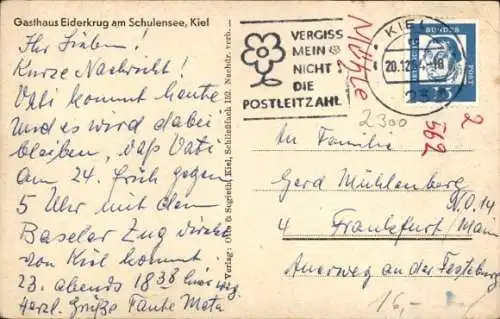 Gasthaus Eiderkrug am Schulensee, Kiel
Ihr Lieben!
Kurze Nachricht!
Vati kommt heute
und es wird dabei
bleiben, daß Vati
am 24. früh gegen
5 Uhr mit dem
Baseler Zug direkt
von Kiel kommt.
23. abends 18 38 hier weg.
Herzl. Grüße Tante Meta
Verlag: Otto & Sugieth, Kiel, Schließfach 152. Nachdr. verb.
VERGISS
MEIN
NICHT
DIE
POSTLEITZAHL
KIEL
20.12.
DEUTSCHE
BUNDES
POST
2300
2
562
An Familie
Gerd Mühlenberg
N.O.14
4 Frankfurt/Main
Auerweg an der Festeburg
16,-